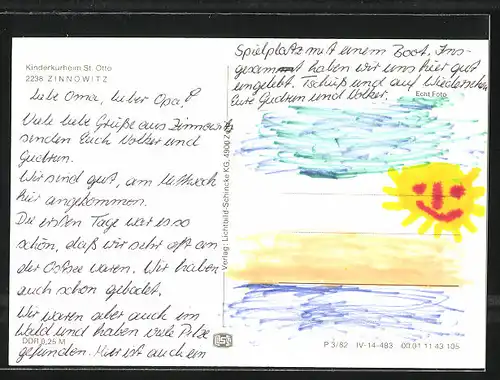 Kinderkurheim St. Otto
2238 ZINNOWITZ
Liebe Oma, lieber Opa!
Viele liebe Grüße aus Zinnowitz
senden Euch Volker und
Gudrun.
Wir sind gut, am Mittwoch
hier angekommen.
Die ersten Tage war es so
schön, daß wir sehr oft an
der Ostsee waren. Wir haben
auch schon gebadet.
Wir waren aber auch im
Wald und haben viele Pilze
gefunden. Hier ist auch ein
DDR 0,25 M
Verlag: Lichtbild-Schincke KG, 4900
Spielplatz mit einem Boot. Ins-
gesammt haben wir uns hier gut
eingelebt. Tschüß und auf Wiedersehen
Eure Gudrun und Volker.
Echt Foto
P 3/82 IV-14-483 03 01 11 43 105